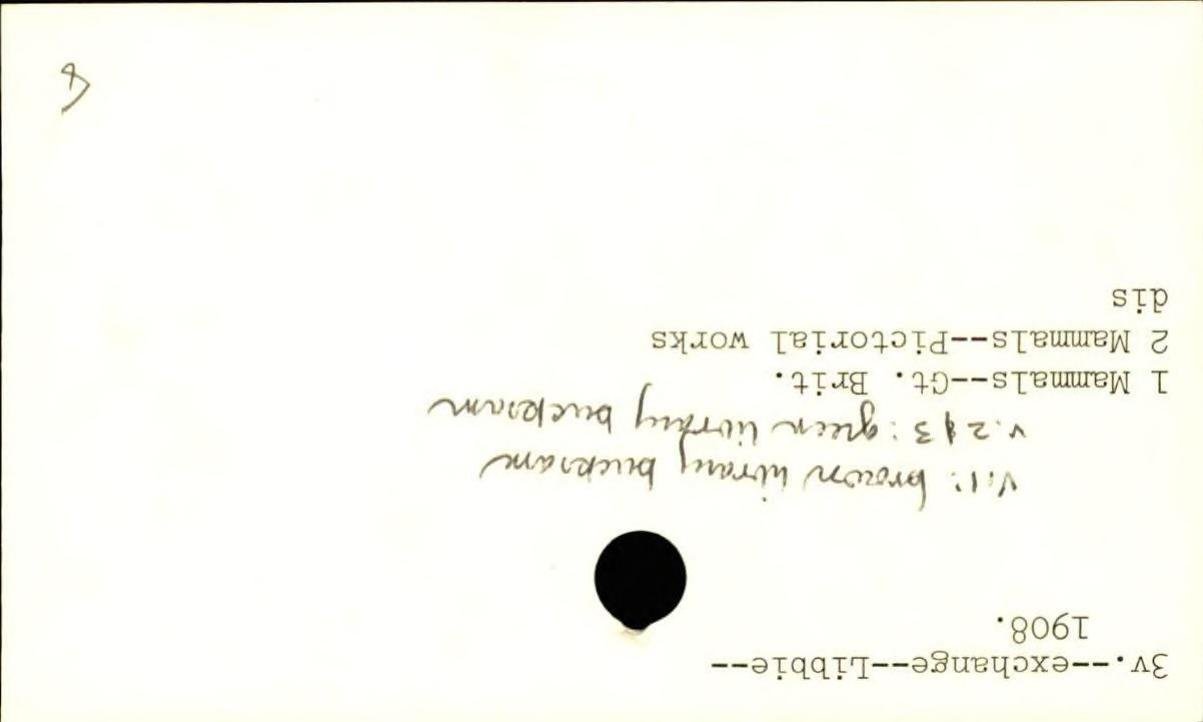 3v.--exchange--Libbie--
1908.
v.1: brown library buckram
v.2 & 3: green library buckram
1 Mammals--Gt. Brit.
2 Mammals--Pictorial works
dis